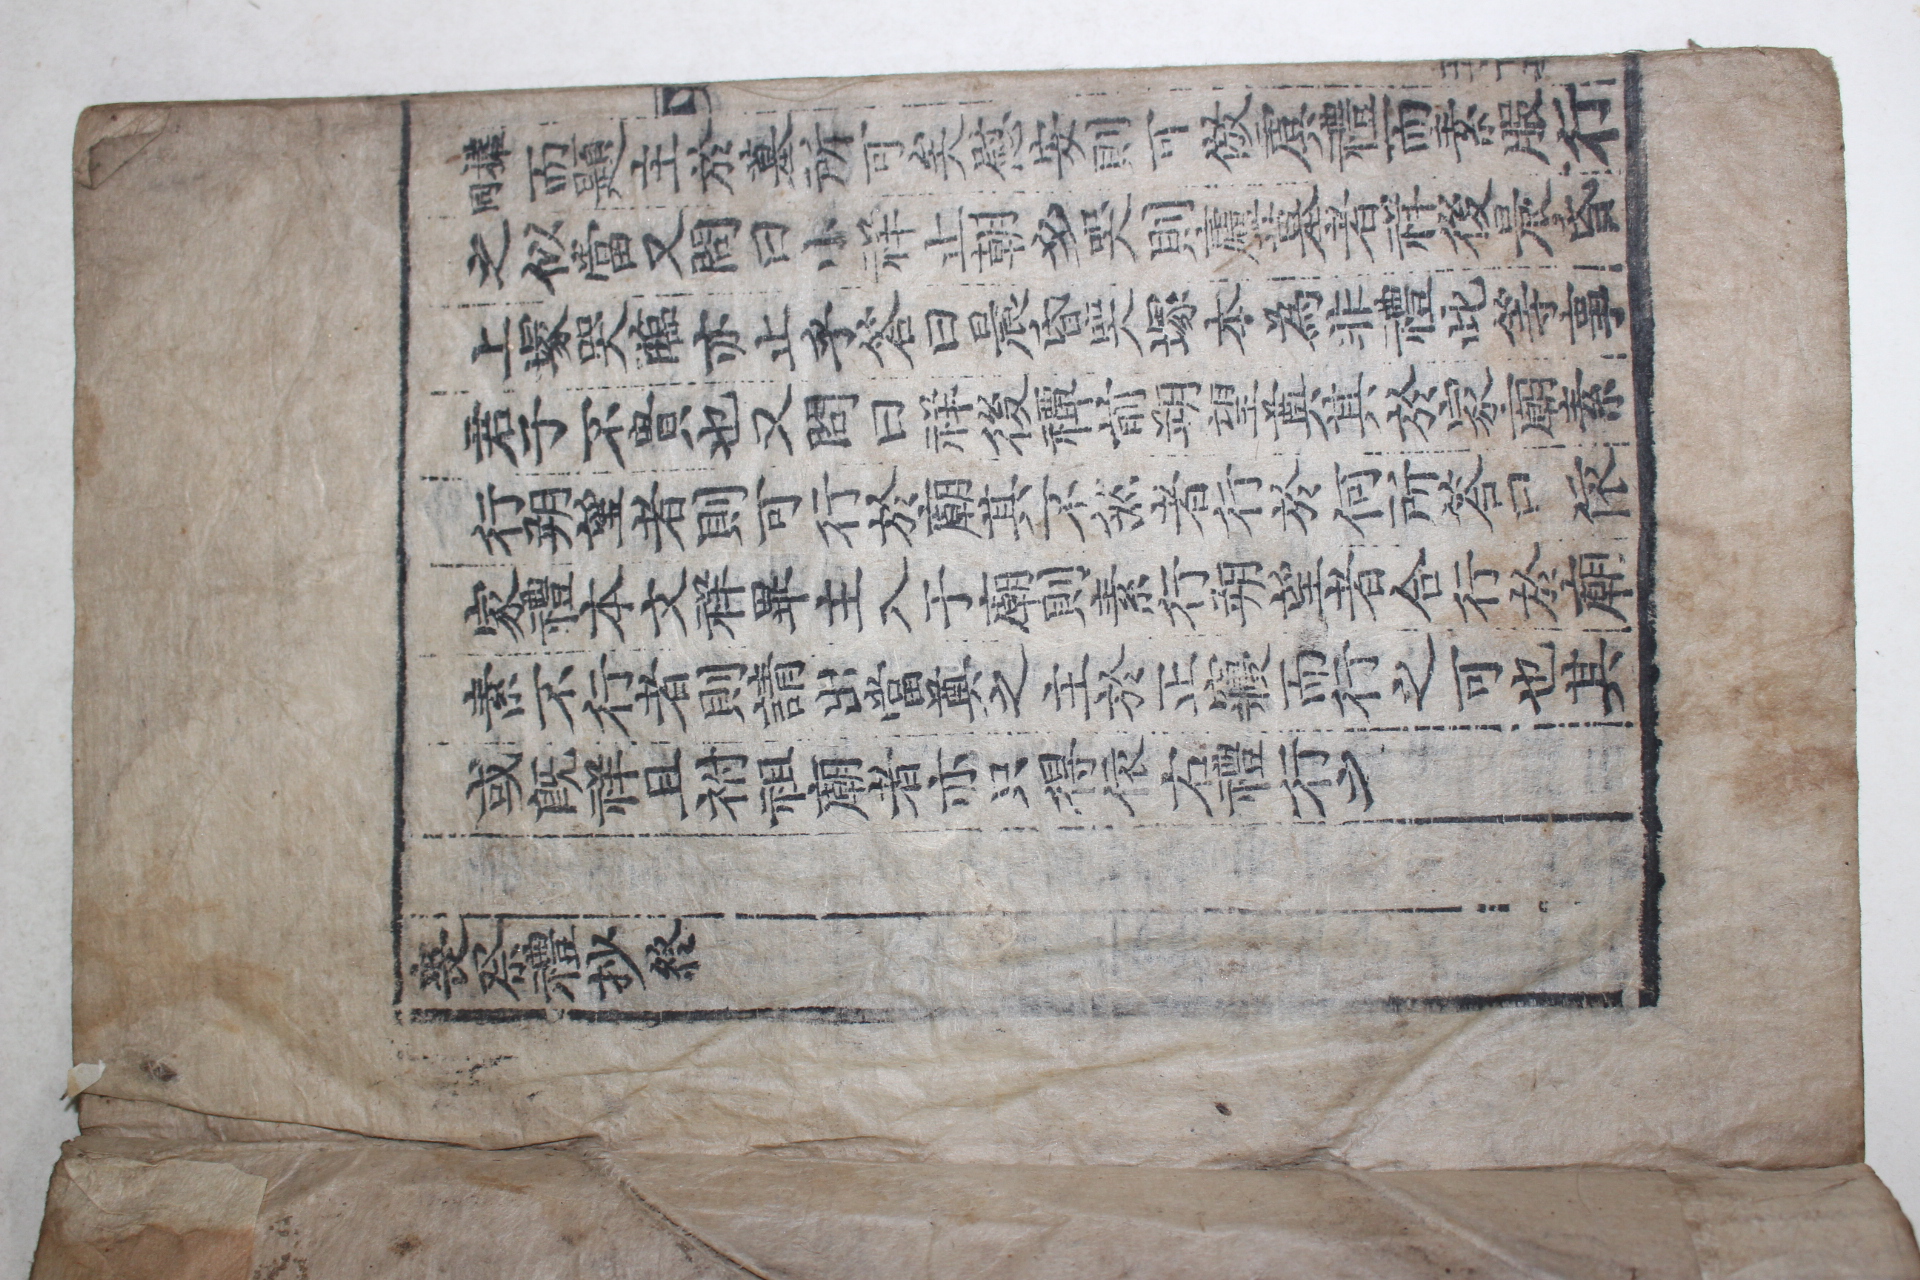 而題主於墓所可矣然則可倣虞禮而素服行
之似當又問曰小祥止朝夕哭則廬墓者祥後晨昏
上塚哭臨亦止乎答曰晨昏哭塚本爲非禮此等事
君子不貴也又問曰祥後禫前朔望奠宜於家廟素
行朔望者則可行於廟其不然者行於何所答曰依
家禮本文祥畢主入于廟則素行朔望者合行於廟
素不行者則請出當奠之主於正寢而行之可也其
或旣祥且祔祖廟者亦只得依右禮行之
喪祭禮抄終